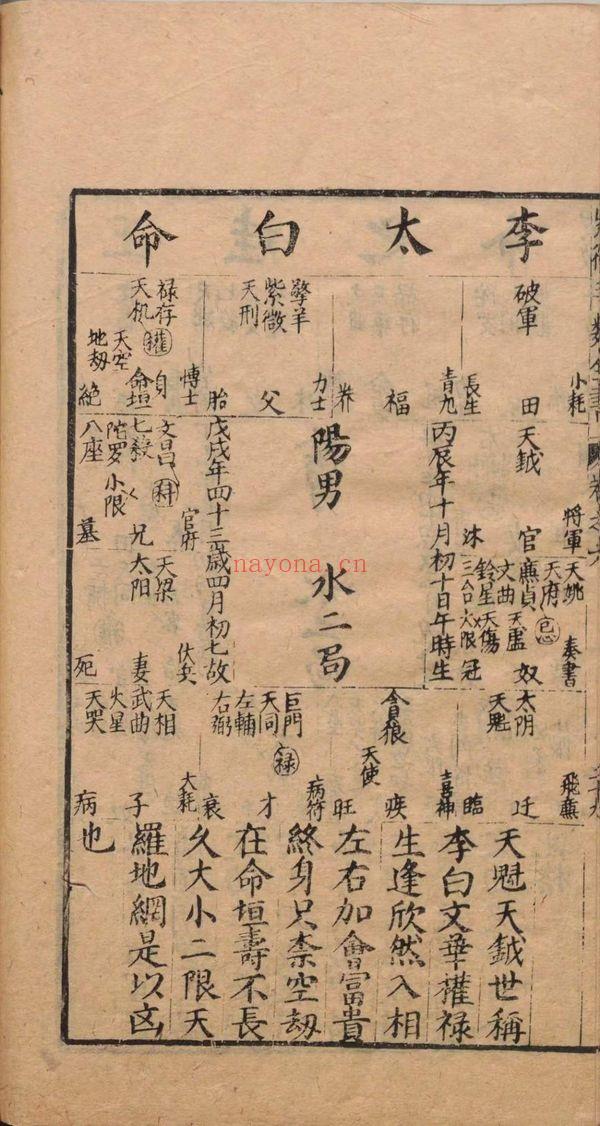 李太白命
破軍
小耗
田
長生
青九
福
養
擎羊
紫微
天刑
力士
父
胎
祿存
天机
權
天空
地劫
博士
身
命垣
絕
天鉞
將軍
官
沐
文昌
科
七殺
陀罗
小限
八座
官府
兄
墓
天姚
天府
廉貞
文曲
鈴星
三台
天虛
天傷
大限
奏書
奴
冠
天梁
太阳
伏兵
妻
死
丙辰年十月初十日午時生
陽男 水二局
戊戌年四十三歲四月初七故
太阴
天魁
飛廉
迁
臨
貪狼
天使
喜神
疾
旺
巨門
天同
祿
左輔
右弼
病符
才
衰
天相
武曲
火星
天哭
大耗
子
病
天魁天鉞世稱
李白文華權祿
生逢欣然入相
左右加會富貴
終身只柰空劫
在命垣壽不長
久大小二限天
羅地網是以凶
也
nayona.cn